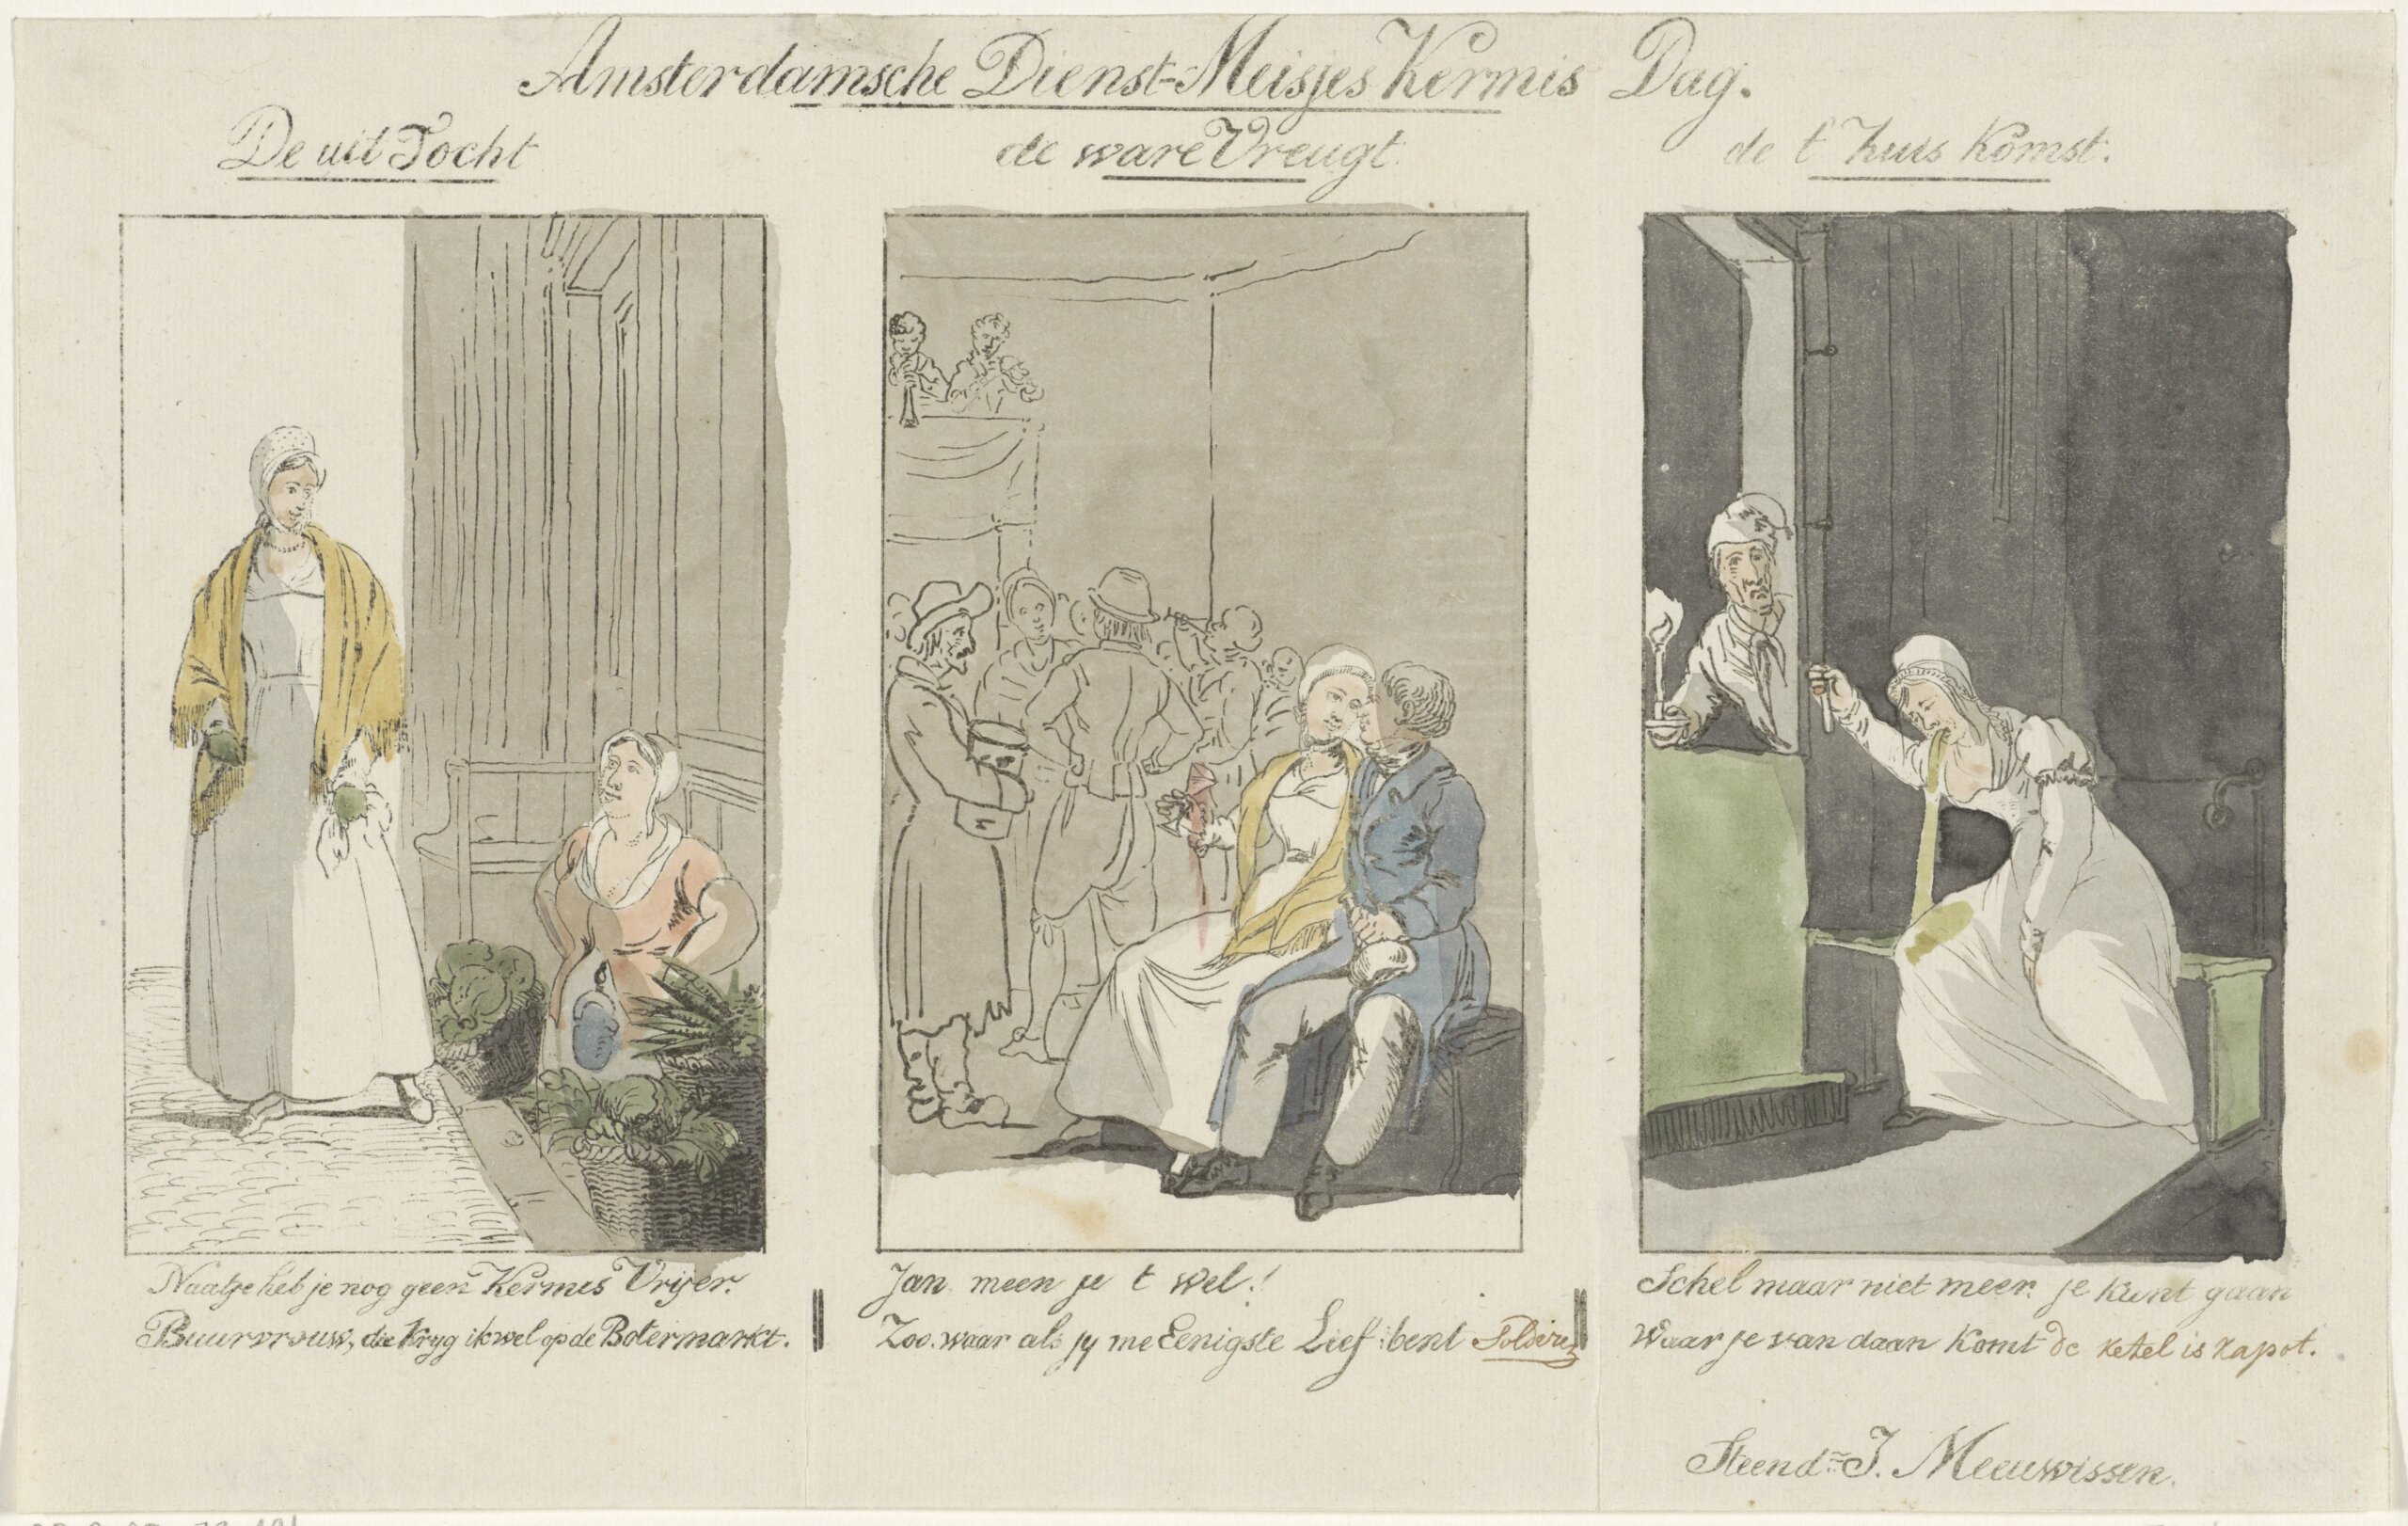 Amsterdamsche Dienst-Meisjes Kermis Dag.
De uit Tocht
de ware Vreugt.
de t' huis komst.
Naatje heb je nog geen Kermis Vrijer.
Buurvrouw, die kryg ik wel op de Botermarkt.
Jan meen je t wel!
Zoo waar als jy me Eenigste Lief bent
Schel maar niet meer, je kunt gaan
Waar je van daan komt de ketel is kapot.
Steend=J. Meeuwissen.